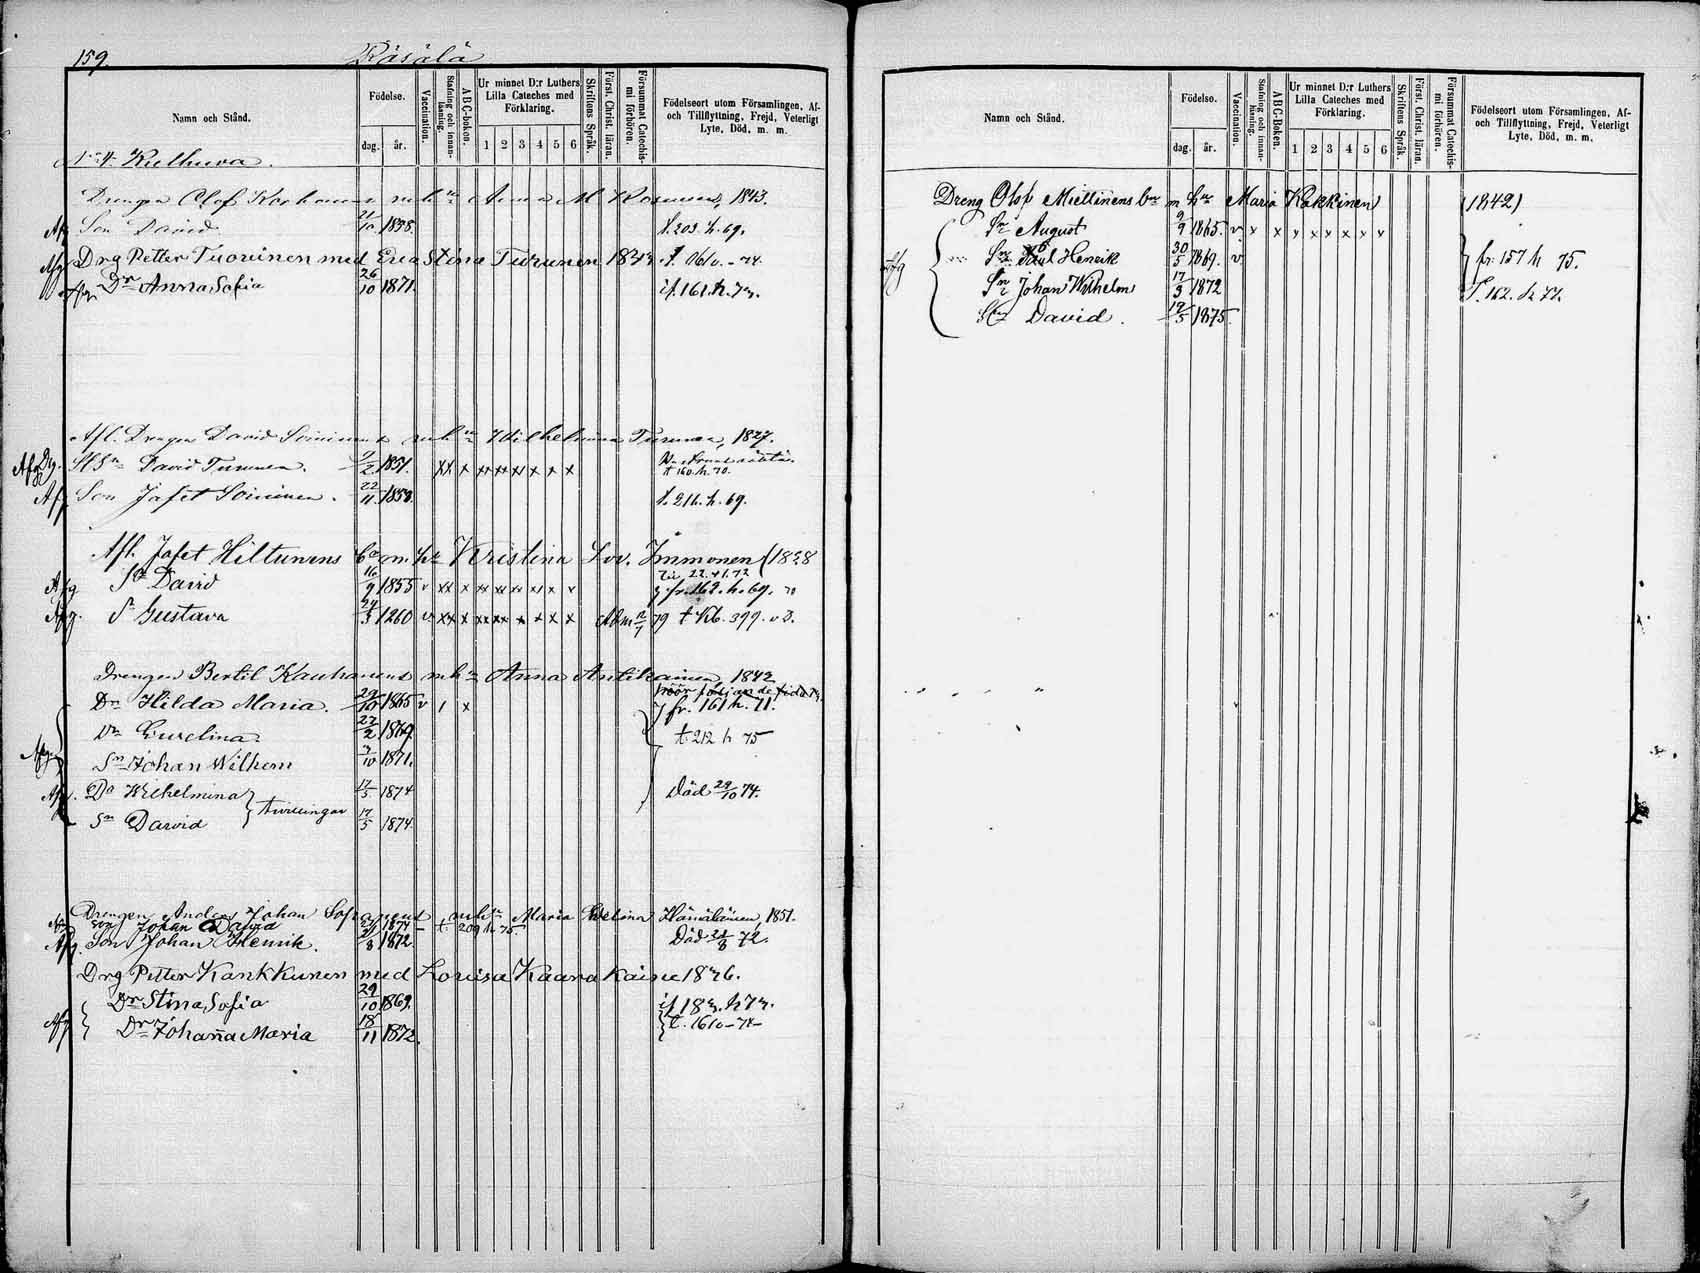 159. Räsälä
Namn och Stånd.
Födelse.
dag. år.
Vaccination.
Stafning och innanläsning.
ABC-boken.
Ur minnet D:r Luthers Lilla Cateches med Förklaring.
1 2 3 4 5 6
Skriftens Språk.
Först. Christ. läran.
Försummat Catechismi förhören.
Födelseort utom Församlingen, Af- och Tillflyttning, Frejd, Veterligt Lyte, Död, m. m.
N:o 4. Kulhuva.
Drengen Olof mhu Anna M 1843.
Afg Son David 21/10 1858. t. 203. h. 69.
Afg Drg Petter Tuovinen med Eva Stina Turunen
Afg Dr Anna Sofia 26/10 1871. if. 161. h. 73.
Afl. Drengen David Soininens mhu Wilhelmina Turunen, 1827.
Afg Drg. David Turunen. 1851. xx x xx xx x x x x t 160. h. 70.
Afg Son Jafet Soininen. 22/11 1858. t. 216. h. 69.
Afl. Jafet Hiltunens ba m. hu Kristina Lov. Immonen (1828
Afg Sn David 16/9 1855 v xx x xx xx x x x x fr. 162. h. 69.
Afg. Sn Gustava 1260 v xx x xx xx x x x x Adm 79 t Kb. 399.
Drengen Bertil Kauhanens mhu Anna Antikainen, 1842
Dr Hilda Maria. 29/10 1865 v / x fr. 161 h. 71.
Dr Evelina. 22/2 1869 t. 212 h 75
Afg Sn Johan Wilhem 10 1871.
Afg. Dr Wilhelmina 17/5 1874 Död 29/10 74.
Sn David } tvillingar 17/5 1874.
Drengen Anders Johan mhu Maria Hämäläinen, 1851.
Son Johan David 1874 t. 209 h 75.
Afg. Son Johan Henrik. 1872. Död 72.
Drg Petter Kankkunen med Lovisa Kaarakaine 1846.
Dr Stina Sofia 29/10 1869.
Afg Dr Johanna Maria 18/11 1872. t. 161
Namn och Stånd.
Födelse.
dag. år.
Vaccination.
Stafning och innanläsning.
ABC-Boken.
Ur minnet D:r Luthers Lilla Cateches med Förklaring.
1 2 3 4 5 6
Skriftens Språk.
Först. Christ. läran.
Försummat Catechismi förhören.
Födelseort utom Församlingen, Af- och Tillflyttning, Frejd, Veterligt Lyte, Död, m. m.
Dreng Olof Miettinens ba m hu Maria Kokkinen (1842)
Sn August 9/9 1865. v x x x x x x x x
Afg Sn Henrik 30/5 1869. v. fr. 157 h 75.
Sn Johan Wilhelm 17/3 1872 T. 162. h 77.
Son David. 19/5 1875.